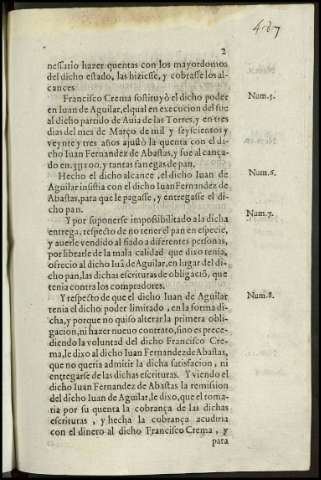 4187
2
nessario hazer quentas con los mayordomos
del dicho estado, las hiziesse, y cobrasse los al-
cances
Francisco Crema sostituyò el dicho poder
en Iuan de Aguilar, el qual en execucion del fue
al dicho partido de Auia de las Torres, y en tres
dias del mes de Março de mil y seyscientos y
veynte y tres años ajustò la quenta con el di-
cho Iuan Fernandez de Abastas, y fue al cança-
do en, y tantas fanegas de pan.
Num. 5.
Hecho el dicho alcance, el dicho Iuan de
Aguilar insistia con el dicho Iuan Fernandez de
Abastas, para que le pagasse, y entregasse el di-
cho pan.
Num. 6.
Y por suponerse impossibilitado a la dicha
entrega, respecto de no tener el pan en especie,
y auerle vendido al fiado a diferentes personas,
por librarle de la mala calidad que dixo tenia,
ofrecio al dicho Iuã de Aguilar, en lugar del di-
cho pan, las dichas escrituras de obligaciõ, que
tenia contra los compradores.
Num. 7.
Y respecto de que el dicho Iuan de Aguilar
tenia el dicho poder limitado, en la forma di-
cha, y porque no quiso alterar la primera obli-
gacion, ni hazer nueuo contrato, sino es prece-
diendo la voluntad del dicho Francisco Cre-
ma, le dixo al dicho Iuan Fernandez de Abastas,
que no queria admitir la dicha satisfacion, ni
entregarse de las dichas escrituras. Y viendo el
dicho Iuan Fernandez de Abastas la remission
del dicho Iuan de Aguilar, le dixo, que el toma-
tia por su quenta la cobrança de las dichas
escrituras, y hecha la cobrança acudiria
con el dinero al dicho Francisco Crema, y
Num. 8.
para